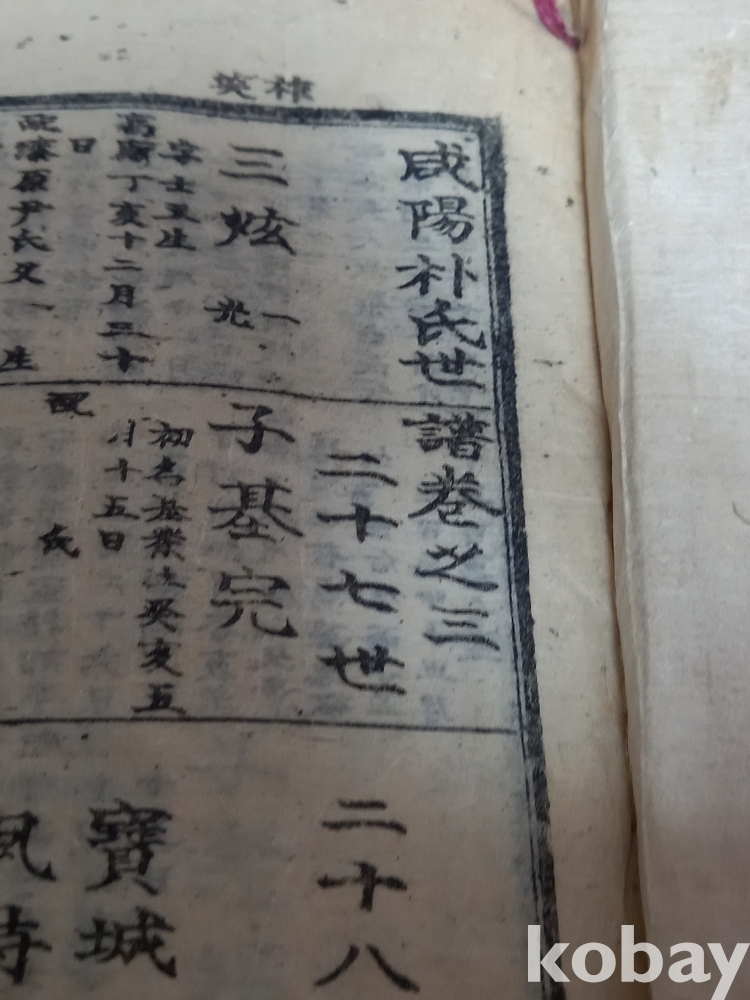 咸陽朴氏世譜卷之三
二十七世
二十八
三炫
一
光
字士
生
高
丁亥十二月三十
日
原尹氏父一
生
子基完
初名基業生癸亥五
月十五日
配
氏
寶城
鳳
kobay